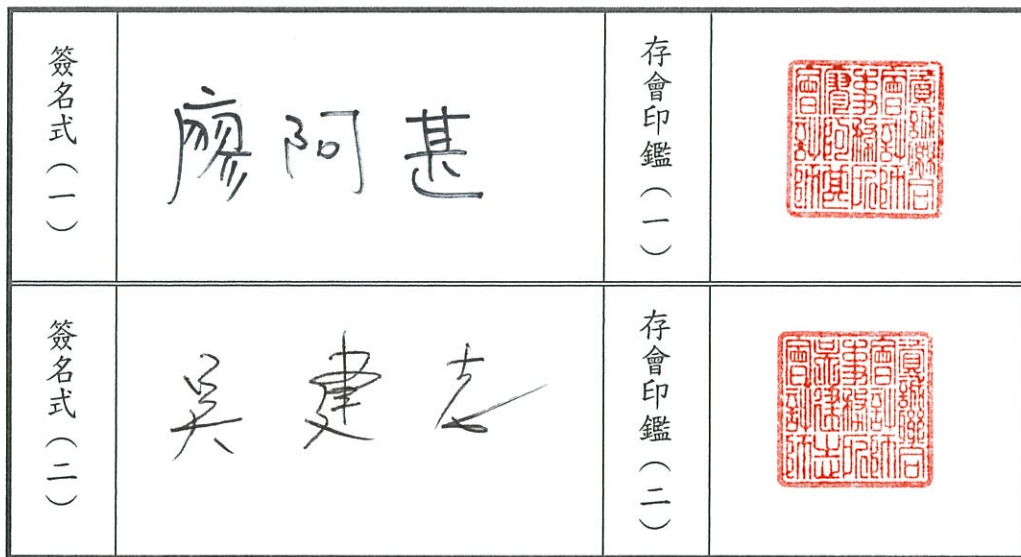 簽名式（一）
廖阿甚
存會印鑑（一）
資誠聯合
會計師
事務所
廖阿甚
會計師
簽名式（二）
吳建志
存會印鑑（二）
資誠聯合
會計師
事務所
吳建志
會計師